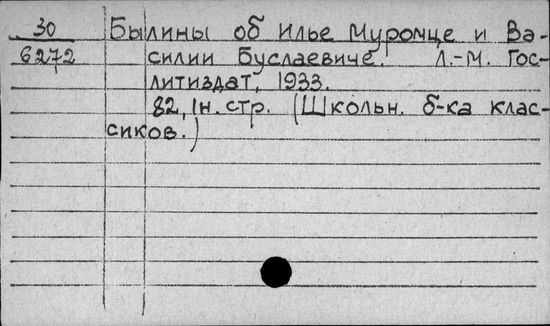 30 Былины об Илье Муромце и Ва-
6272 силии Буслаевиче. Л.-М. Гос-
литиздат, 1933.
82, 1н. стр. (Школьн. б-ка клас-
сиков.)